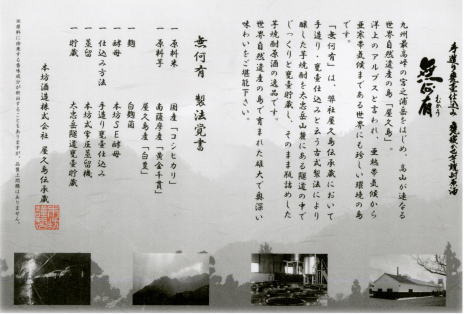 手造り甕壷仕込み 甕貯蔵芋焼酎原酒
無何有
むかう
九州最高峰の宮之浦岳をはじめ、高山が連なる
洋上のアルプスと言われ、亜熱帯気候から
亜寒帯気候まである世界にも珍しい環境の島
世界自然遺産の島「屋久島」。
です。
「無何有」は、弊社屋久島伝承蔵において
手造り・甕壷仕込みと云う古式製法により
醸した芋焼酎を太忠岳山麓にある隧道の中で
じっくりと甕壷貯蔵し、そのまま瓶詰めした
芋焼酎原酒の逸品です。
世界自然遺産の島で育まれた雄大で奥深い
味わいをご堪能下さい。
無何有 製法覚書
一 原料米 国産「コシヒカリ」
一 原料芋 南薩摩産「黄金千貫」
屋久島産「白豊」
一 麹 白麹菌
一 酵母 本坊SE酵母
一 仕込み方法 手造り甕壷仕込み
一 蒸留 本坊式常圧蒸留機
一 貯蔵 太忠岳隧道甕壷貯蔵
本坊酒造株式会社 屋久島伝承蔵
※原料に由来する香味成分が析出することもありますが、品質上問題はありません。